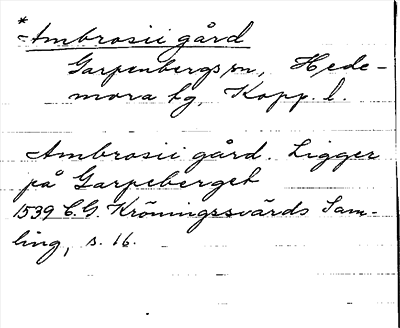 * Ambrosii gård
Garpenbergs sn, Hede-
mora tg, Kopp. l.
Ambrosii gård. Ligger
på Garpeberget
1539 C.G. Kröningssvärds Sam-
ling, s. 16.